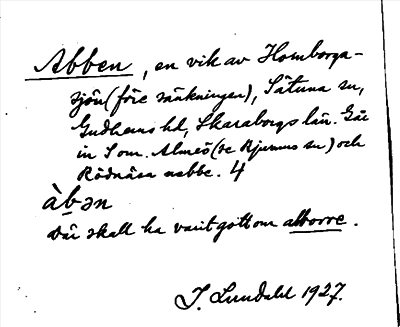 Abben, en vik av Hornborga-
sjön (före sänkningen), Sätuna sn,
Gudhems hd, Skaraborgs län. Går
in S om. Almeö (se Bjurums sn) och
Rödnäsa nabbe. 4
àbən
Där skall ha varit gott om abborre.
J. Lundahl 1927.